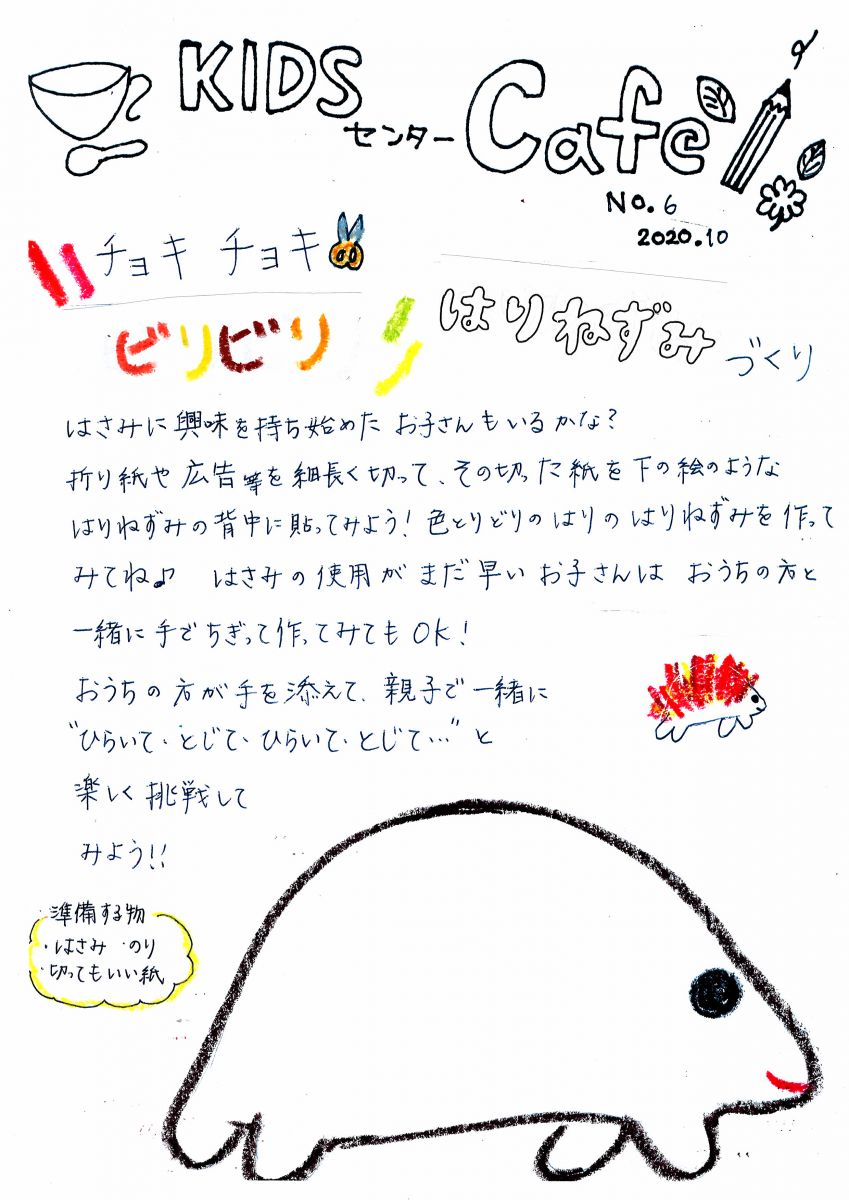 KIDS
センター Cafe
No.6
2020.10
チョキ チョキ
ビリビリ
はりねずみ づくり
はさみに興味を持ち始めた お子さんもいるかな?
折り紙や広告等を細長く切って、その切った紙を下の絵のような
はりねずみの背中に貼ってみよう！色とりどりのはりのはりねずみを作って
みてね♪ はさみの使用がまだ早いお子さんは おうちの方と
一緒に手でちぎって作ってみてもOK！
おうちの方が手を添えて、親子で一緒に
“ひらいて・とじて・ひらいて・とじて…”と
楽しく挑戦して
みよう!!
準備する物
・はさみ ・のり
・切ってもいい紙